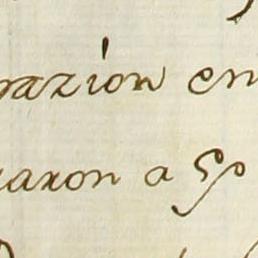 razion en
raron a So